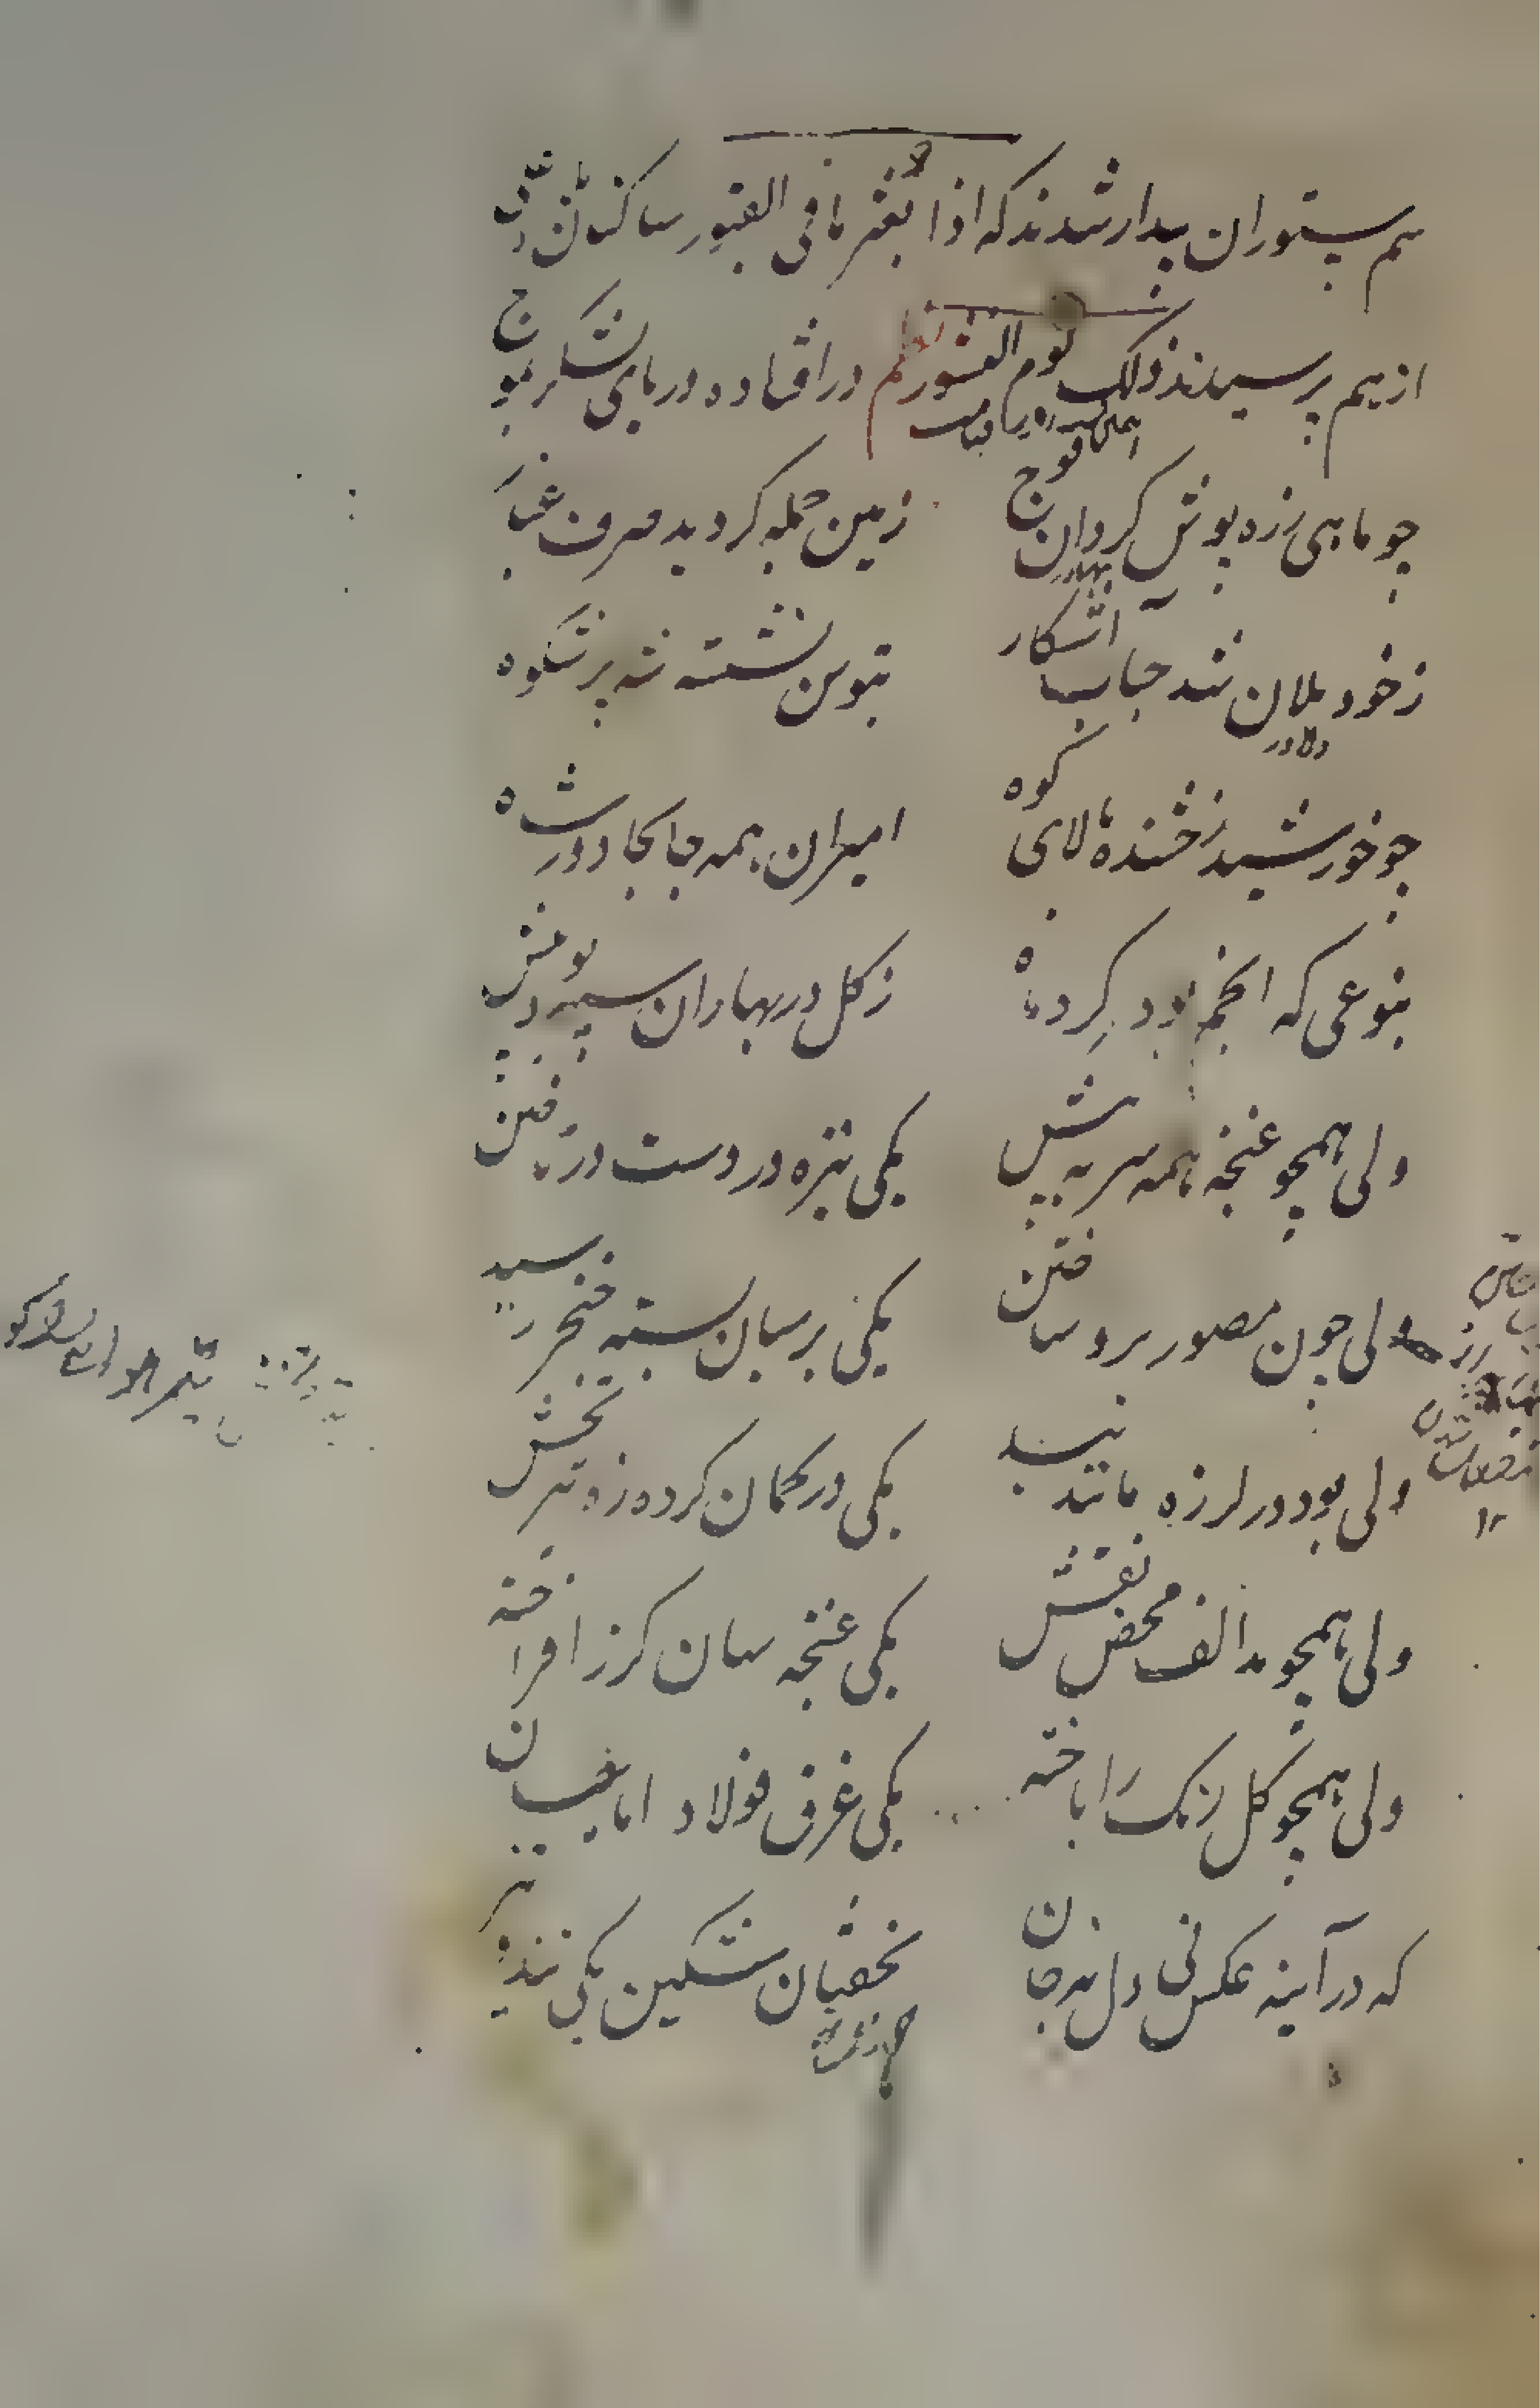 سم ستوران بیدار شدند که اذا بُعثر ما فی القبور ساکنان
از هم پرسیدند ذلک یوم النشور نظم در افتاده دریای لشکر بموج
چو ماهی زره پوش گردان فوج زمین جمله گردید صرف غبار
ز خود یلان شد حباب آشکار بتوسن نشسته شه پر شکوه
دلاور
چو خورشید رخشنده بالای کوه امیران همه جابجا دور شاه
بنوعی که انجم بود گرد ماه ز گل در بهاران سپر دید پوش
ولی همچو غنچه همه سر به پیش یکی نیزه در دست در تافتن
ولی چون مصور برو ساختن یکی بر میان بسته خنجر رسید
ولی بود در لرزه مانند بید یکی در کمان کرده زو تیر بخش
ولی همچو مد الف محض نقش یکی غنچه سان گرز افراخته
ولی همچو گل رنگ را باخته یکی غرق فولاد اما عیان
که در آینه عکس نی دل نه جان بخفتان مشکین یکی تند